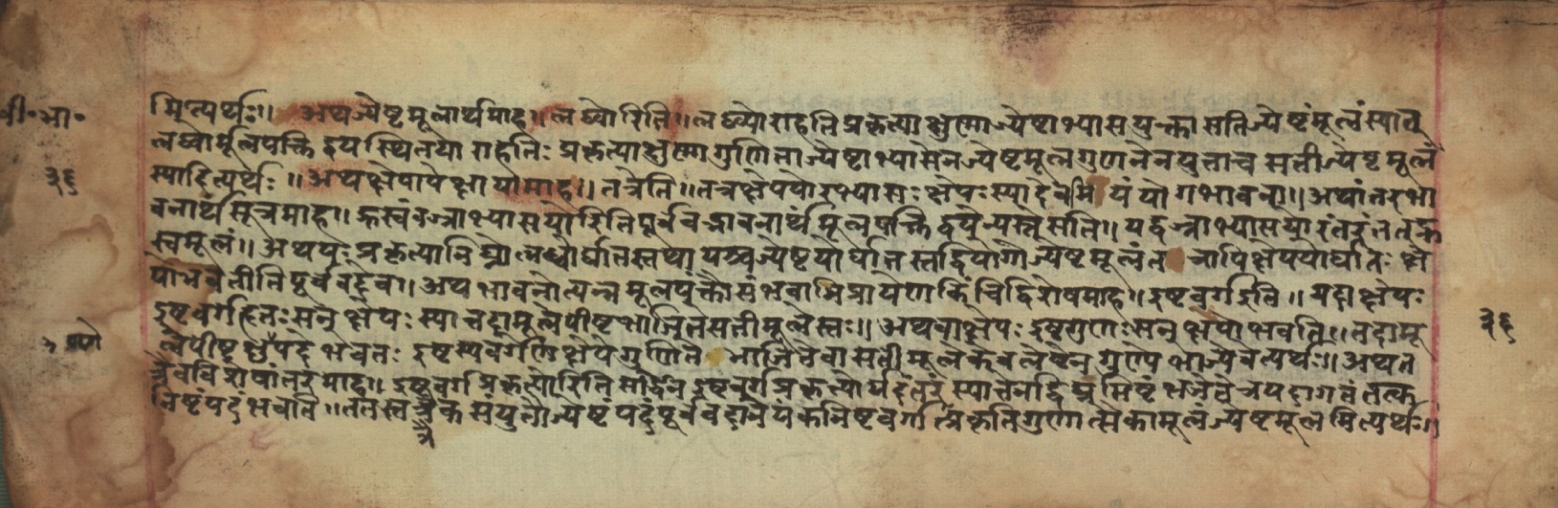 वी॰भा॰
३६
मित्यर्थः॥ अथज्येष्टमूलार्थमाह॥लघ्वोरिति॥लघ्व्योराहतिप्रकृत्याक्षुणोज्येष्टाभ्यासयुक्तासतिज्येष्टंमूलंस्यात्
लघ्वोर्मूलपंक्तिद्वयस्थितयोराहतिः प्रकृत्याक्षुणोगुणिताज्येष्टाभ्यासेनज्येष्टमूलगुणनेनयुताचसतीज्येष्टमूलं
स्यादित्यर्थः॥अथक्षेपापेक्षायामाह॥तत्रेति॥तत्रक्षेपयोरभ्यासःक्षेपःस्यादेवमियंयोगभावना॥अथांतरभा
वनार्थंसूत्रमाह॥ह्रस्वंवज्राभ्यासयोरितिपूर्ववद्भावनार्थंमूलपंक्तिद्वयेन्यस्तसति॥यद्वज्राभ्यासयोरंतरंतत्
स्वमूलं॥अथयःप्रकृत्यानिघ्नोलघ्वोर्घातस्तथायश्चज्येष्टयोर्घातस्तद्वियोगोज्येष्टमूलंत त्रापिक्षेपयोर्घातःक्षे
पोभवतीतिपूर्ववदेव॥अथभावनोत्पन्नमूलपंक्तौसंभवाभिप्रायेणकिंचिद्विशेषमाह॥इष्टवर्गइति॥यदाक्षेपः
इष्टवर्गहृतःसन्क्षेपः स्यात्तदामूलेपीष्टभाजितेसतीमूलेस्तः॥अथवाक्षेपःइष्टगुणःसन्क्षेपोभवति॥तदामू
लेपीष्टक्षुणेपदेभवतः इष्टस्यवर्गेणक्षेपेगुणितेभाजितेवासतीमूलेकेवलेष्टेनगुण्येभाज्येवेत्यर्थः॥अथत
त्रैवविशेषांतरमाह॥इष्टवर्गप्रकृत्योरितिसार्द्धेनइष्टवर्गप्रकृत्योर्यदंतरंस्यात्तेनद्विघ्नमिष्टंभजेत्तत्रयदागतंतत्क
निष्टंपदंभवति॥ततस्तत्रैकसंयुतोज्येष्टंपदंपूर्ववदानेयंकनिष्टवर्गात्प्रकृतिगुणात्सैकामूलंज्येष्टमूलमित्यर्थः॥
३६